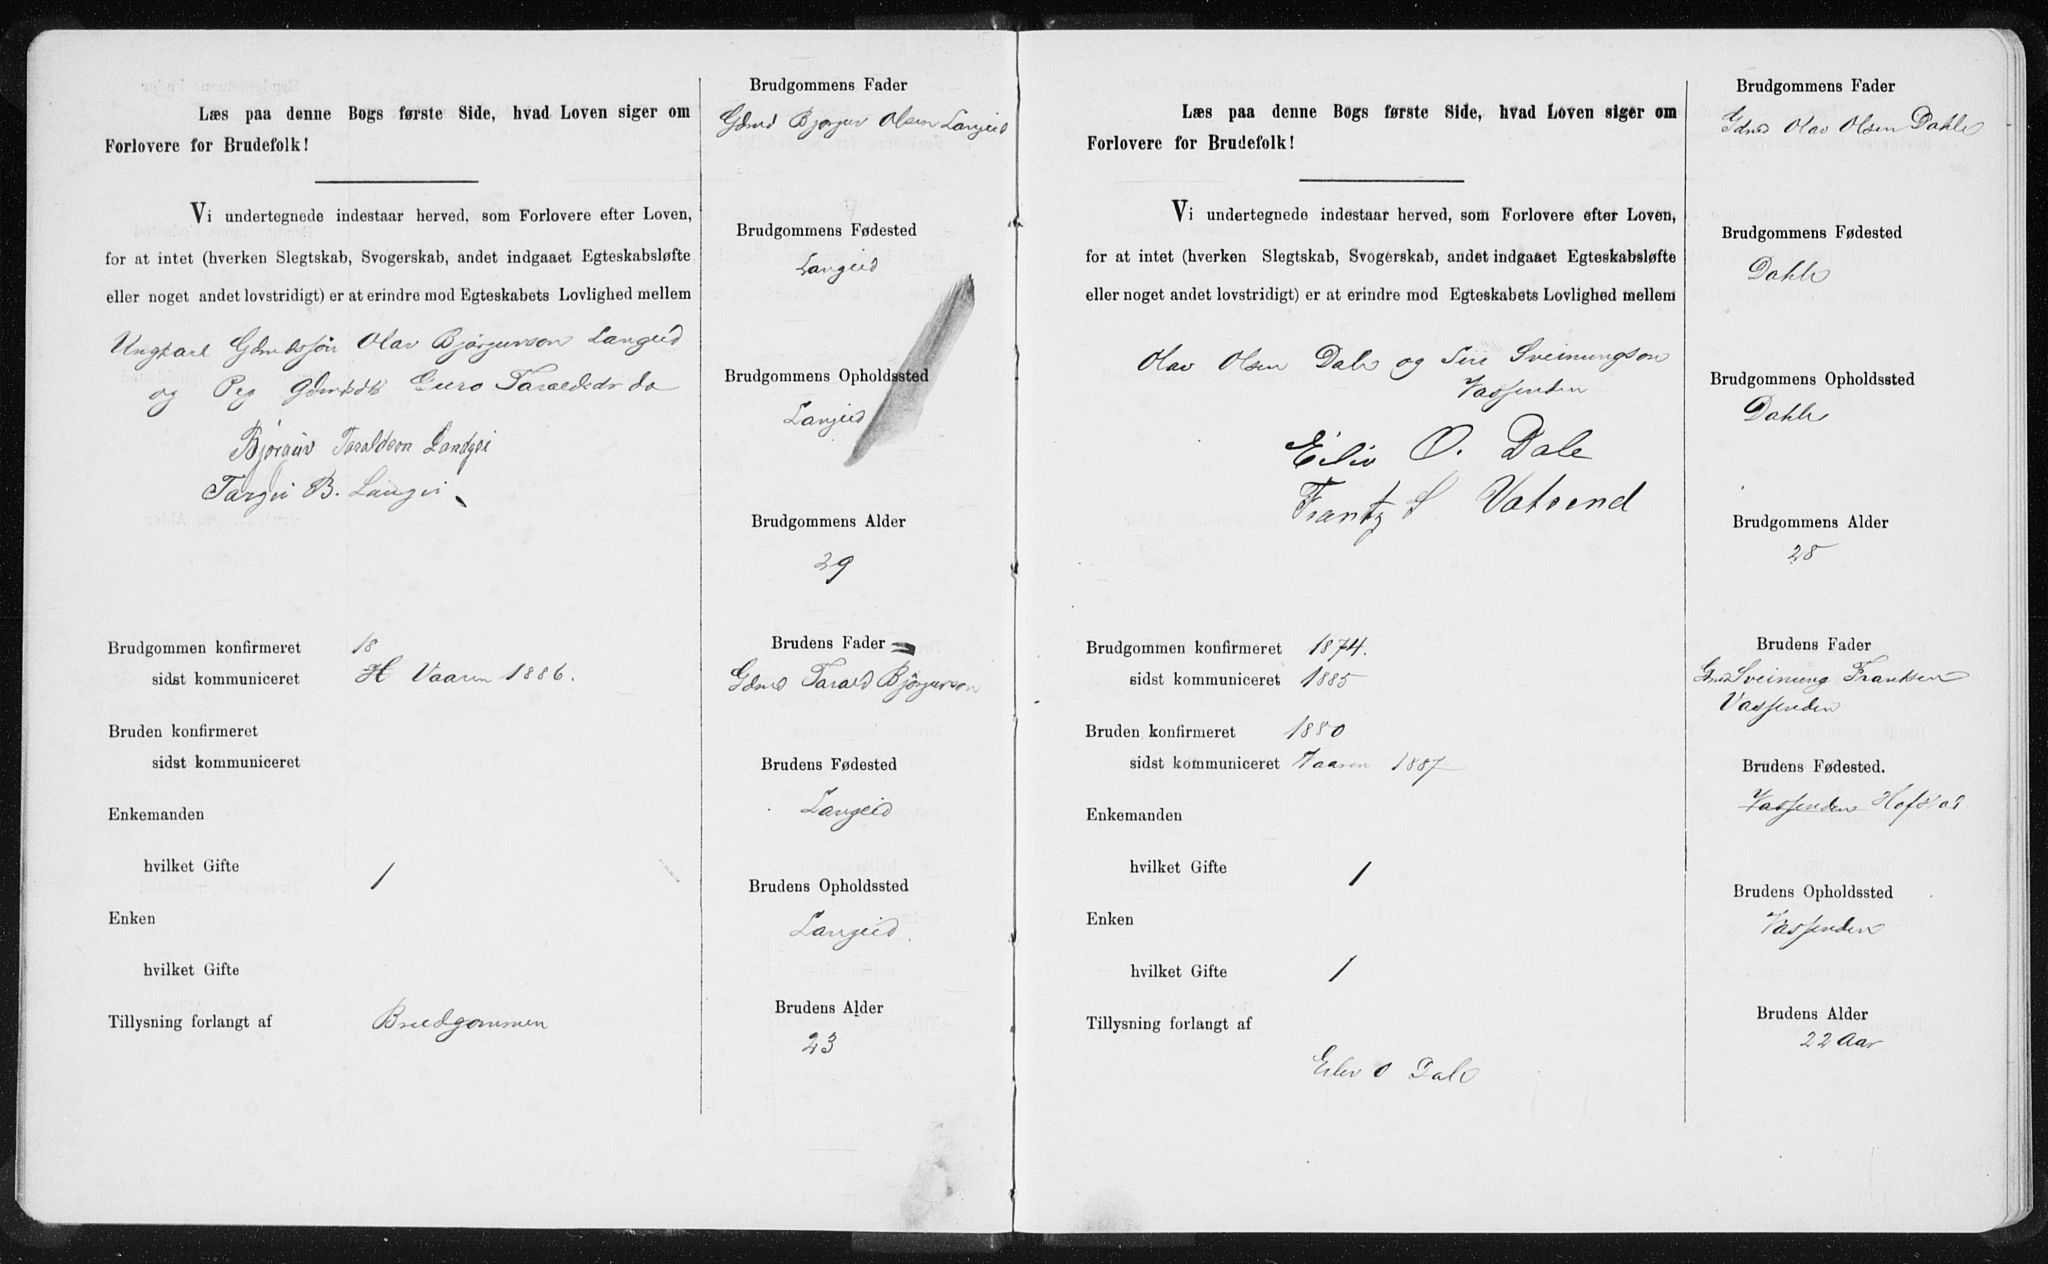 Læs paa denne Bogs første Side, hvad Loven siger om
Forlovere for Brudefolk!
Vi undertegnede indestaar herved, som Forlovere efter Loven,
for at intet (hverken Slegtskab, Svogerskab, andet indgaaet Egteskabsløfte
eller noget andet lovstridigt) er at erindre mod Egteskabets Lovlighed mellem
Ungkarl Gdmdssøn Olav Bjørgurson Langeid
og Peg Gdmdsdt Guro Taraldsdr do
Bjørguv Taraldson Landgei
Targei B. Langei
Brudgommen konfirmeret 18
sidst kommuniceret H Vaaren 1886.
Bruden konfirmeret
sidst kommuniceret
Enkemanden
hvilket Gifte 1
Enken
hvilket Gifte
Tillysning forlangt af Brudgommen
Brudgommens Fader
Gdmd Bjørguv Olsen Langeid
Brudgommens Fødested
Langeid
Brudgommens Opholdssted
Langeid
Brudgommens Alder
29
Brudens Fader
Gdmd Tarald Bjørgurson
Brudens Fødested
Langeid
Brudens Opholdssted
Langeid.
Brudens Alder
23
Læs paa denne Bogs første Side, hvad Loven siger om
Forlovere for Brudefolk!
Vi undertegnede indestaar herved, som Forlovere efter Loven,
for at intet (hverken Slegtskab, Svogerskab, andet indgaaet Egteskabsløfte
eller noget andet lovstridigt) er at erindre mod Egteskabets Lovlighed mellem
Olav Olsen Dale og Siri Sveinungson
Vassenden
Eiliv O. Dale
Frantz S Vatsend
Brudgommen konfirmeret 1874.
sidst kommuniceret 1885
Bruden konfirmeret 1880
sidst kommuniceret Vaaren 1887
Enkemanden
hvilket Gifte 1
Enken
hvilket Gifte 1
Tillysning forlangt af
Eiliv O Dale
Brudgommens Fader
Gdmd Olav Olsen Dahle
Brudgommens Fødested
Dahle
Brudgommens Opholdssted
Dahle
Brudgommens Alder
28
Brudens Fader
Gmd Sveinung Frantsen
Vassenden
Brudens Fødested.
Vassenden Hofstad
Brudens Opholdssted
Vassenden
Brudens Alder
22 Aar